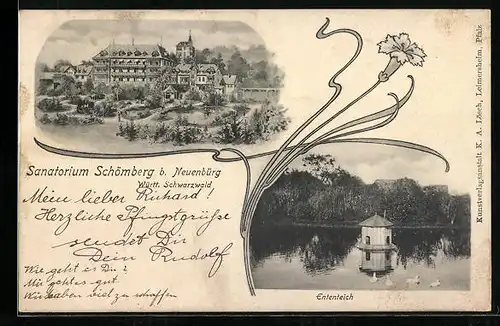 Sanatorium Schömberg b. Neuenbürg
Württ. Schwarzwald
Mein lieber Richard!
Herzliche Pfingstgrüße
sendet Dir
Dein Rudolf
Wie geht es Dir?
Mir geht es gut.
Wir haben viel zu schaffen
Ententeich
Kunstverlagsanstalt K. A. Lösch, Leimersheim, Pfalz.